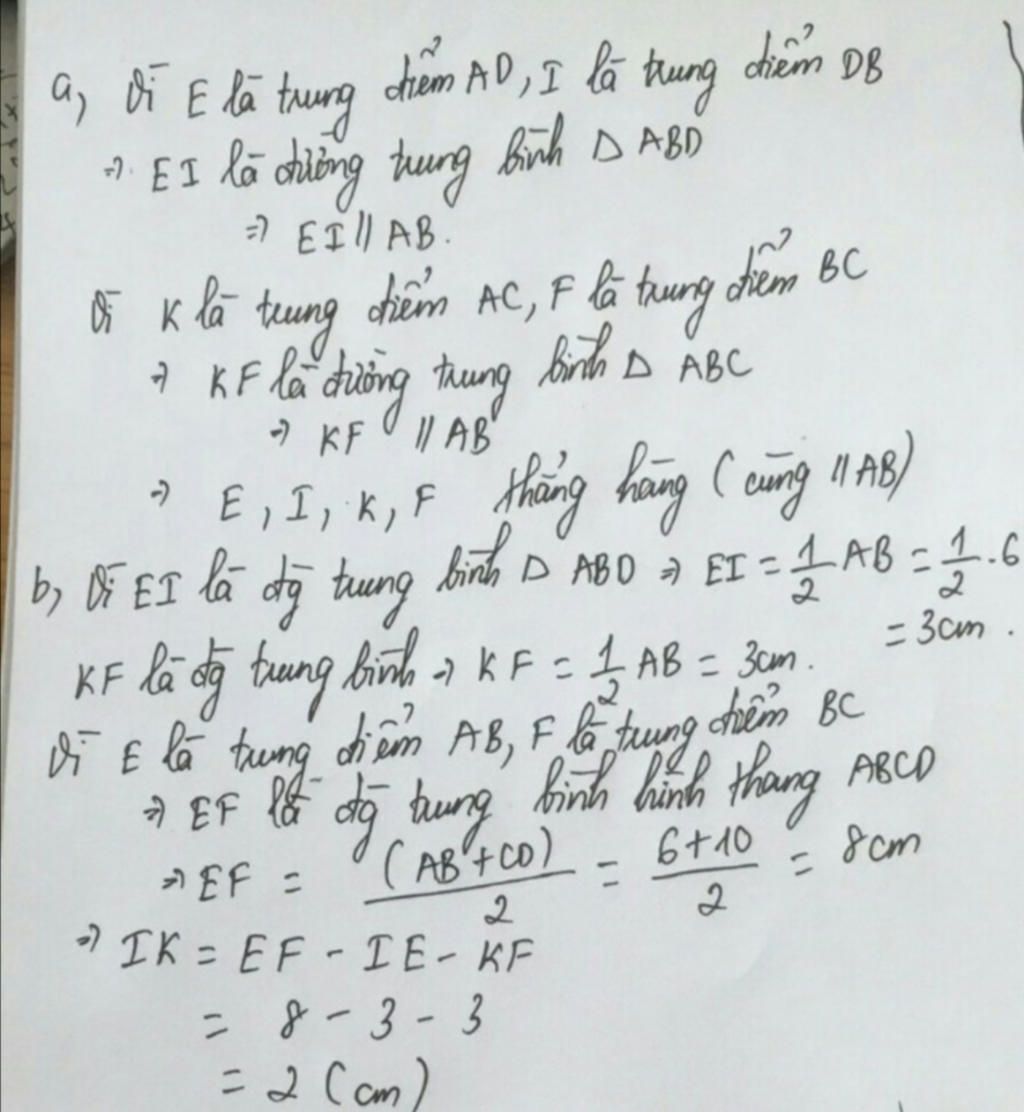 a, Vì E là trung điểm AD, I là trung điểm DB
⇒ EI là đường trung bình Δ ABD
⇒ EI // AB.
Vì K là trung điểm AC, F là trung điểm BC
⇒ KF là đường trung bình Δ ABC
⇒ KF // AB
⇒ E, I, K, F thẳng hàng (cùng // AB)
b, Vì EI là đg trung bình Δ ABD ⇒ EI = 1/2 AB = 1/2 . 6
= 3cm .
KF là đg trung bình ⇒ KF = 1/2 AB = 3cm .
Vì E là trung điểm AB, F là trung điểm BC
⇒ EF là đg trung bình hình thang ABCD
⇒ EF = (AB + CD)/2 = 6+10/2 = 8cm
⇒ IK = EF - IE - KF
= 8 - 3 - 3
= 2 (cm)